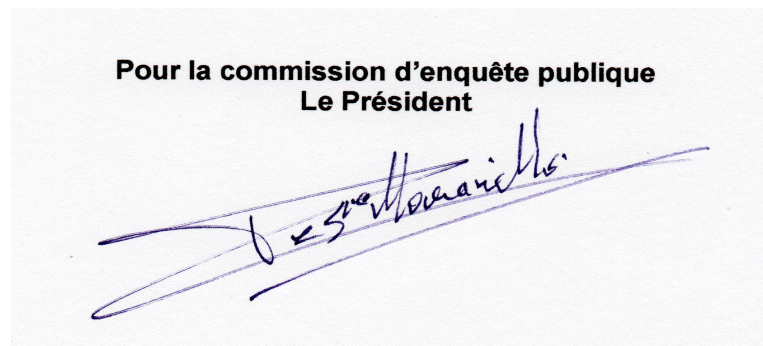 Pour la commission d’enquête publique
Le Président